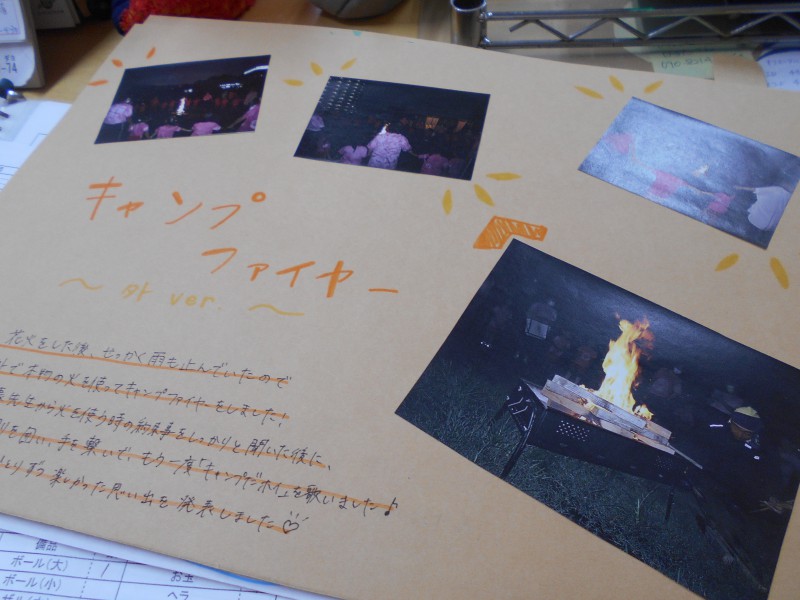 キャンプ
ファイヤー
〜 外 ver. 〜
花火をした後、せっかく雨も止んでいたので
本物の火を使ってキャンプファイヤーをしました!
先生から火を使う時の約束事をしっかりと聞いた後に、
を囲い、手を繋いで、もう一度「キャンプだホイ」を歌いました♪
ひとりずつ楽しかった思い出を発表しました♡
備品
ボール(大)
お玉
ボール(小)
ヘラ
-74